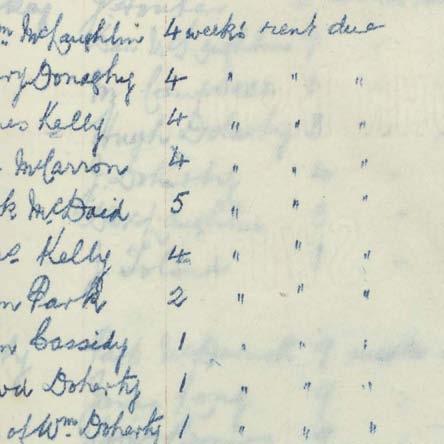 Wm McLaughlin 4 weeks rent due
ry Donaghy 4 " " "
es Kelly 4 " " "
McCarron 4 " " "
k McDaid 5 " " "
Kelly 4 " " "
n Park 2 " " "
n Cassidy 1 " " "
Doherty 1 " " "
of Wm Doherty 1 " " "